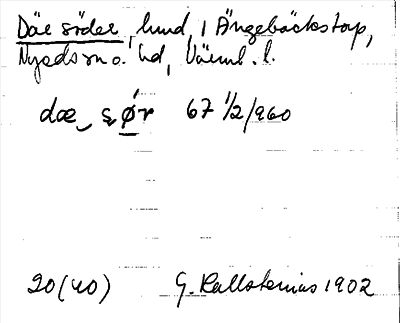 Däe söder, hund, i Ängebäckstorp,
Nyeds sn o. hd, Värml. l.
dæ sør 67 1/2/960
20(40) G. Kallstenius 1902